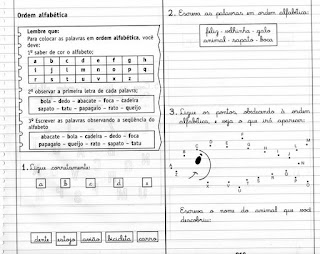 Ordem alfabética
Lembre que:
Para colocar as palavras em ordem alfabética, você
deve:
1º saber de cor o alfabeto;
a b c d e f g h
i j l m n o p q
r s t u v x z
2º observar a primeira letra de cada palavra;
bola - dedo - abacate - foca - cadeira
sapato - tatu - papagaio - rato - queijo
3º Escrever as palavras observando a seqüência do
alfabeto
abacate - bola - cadeira - dedo - foca
papagaio - queijo - rato - sapato - tatu
1. Ligue corretamente:
a b c d e
dente estojo avião bicicleta carro
2. Escreva as palavras em ordem alfabética:
feliz - velhinha - gato
animal - sapato - boca
3. Ligue os pontos, obedecendo à ordem
alfabética e veja o que irá aparecer:
Escreva o nome do animal que você
descobriu: